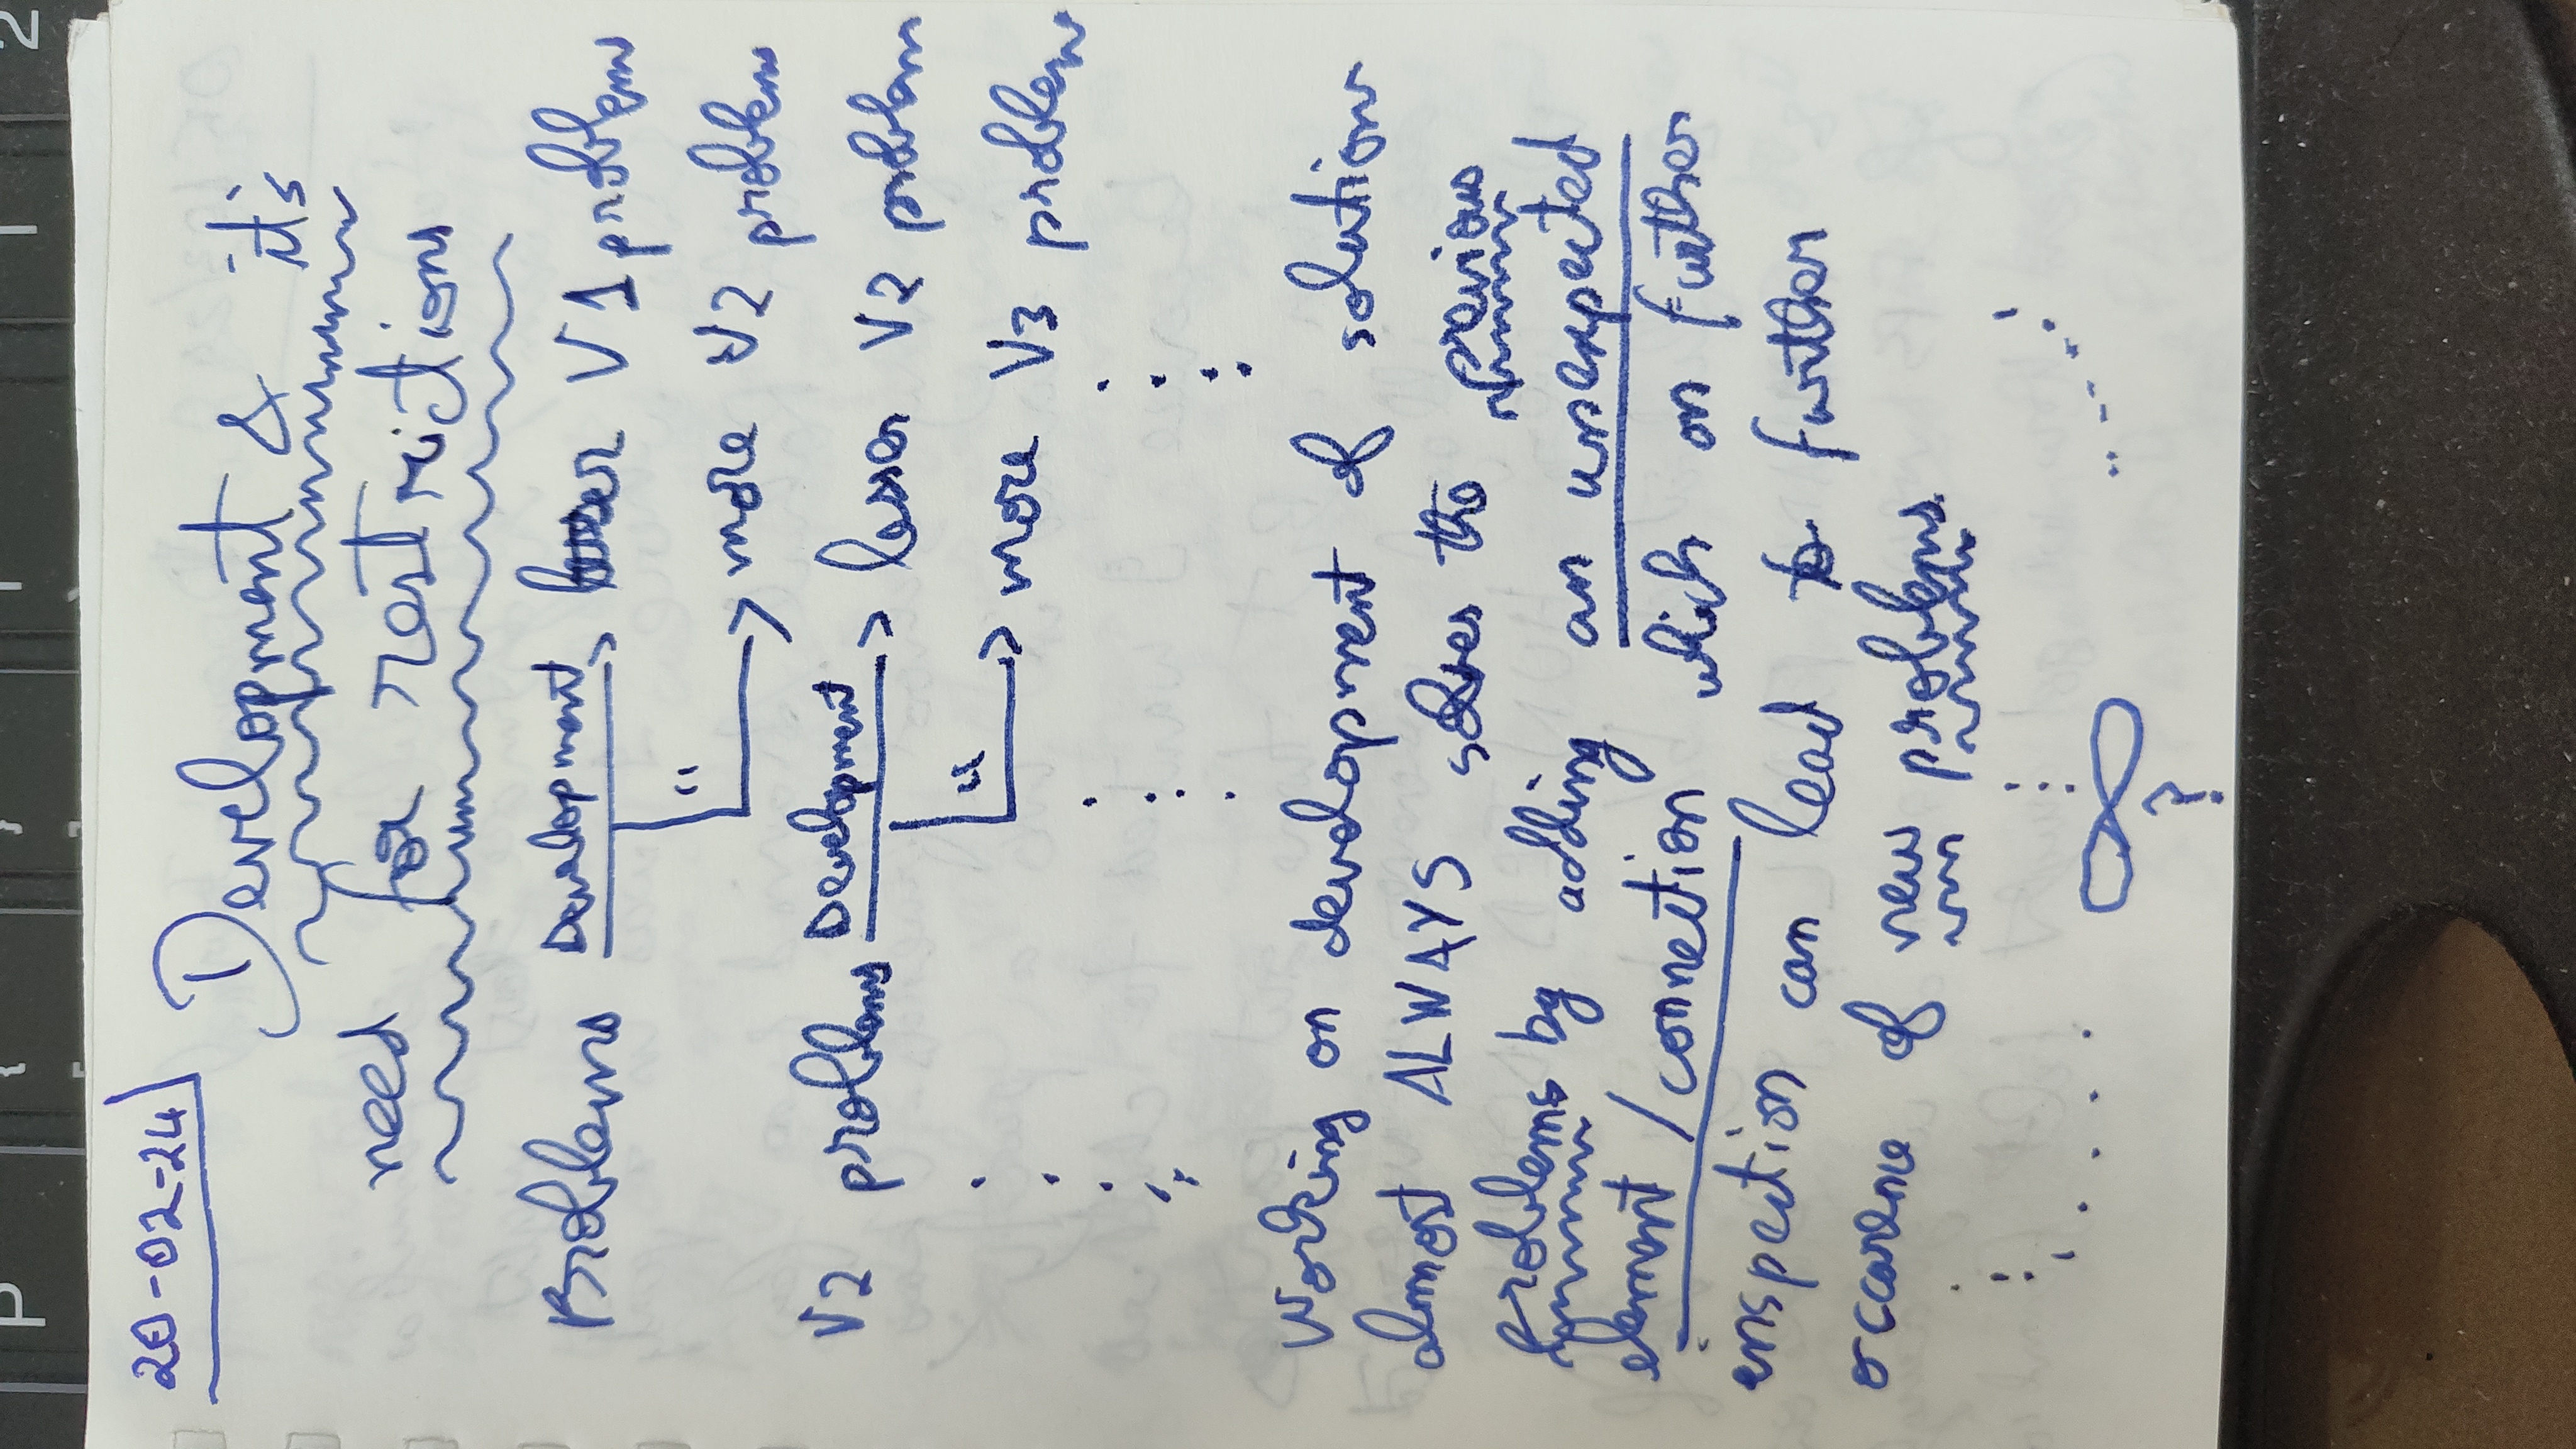 20-02-24
Development & it's
need for restrictions
Problems Development lesser V1 problems
" more V2 problems
V2 problems Development lesser V2 problem
" more V3 problems
Working on development of solution
almost ALWAYS solves the previous
problems by adding an unexpected
element/connection which on further
inspection can lead to further
occarene of new problems.
∞
?